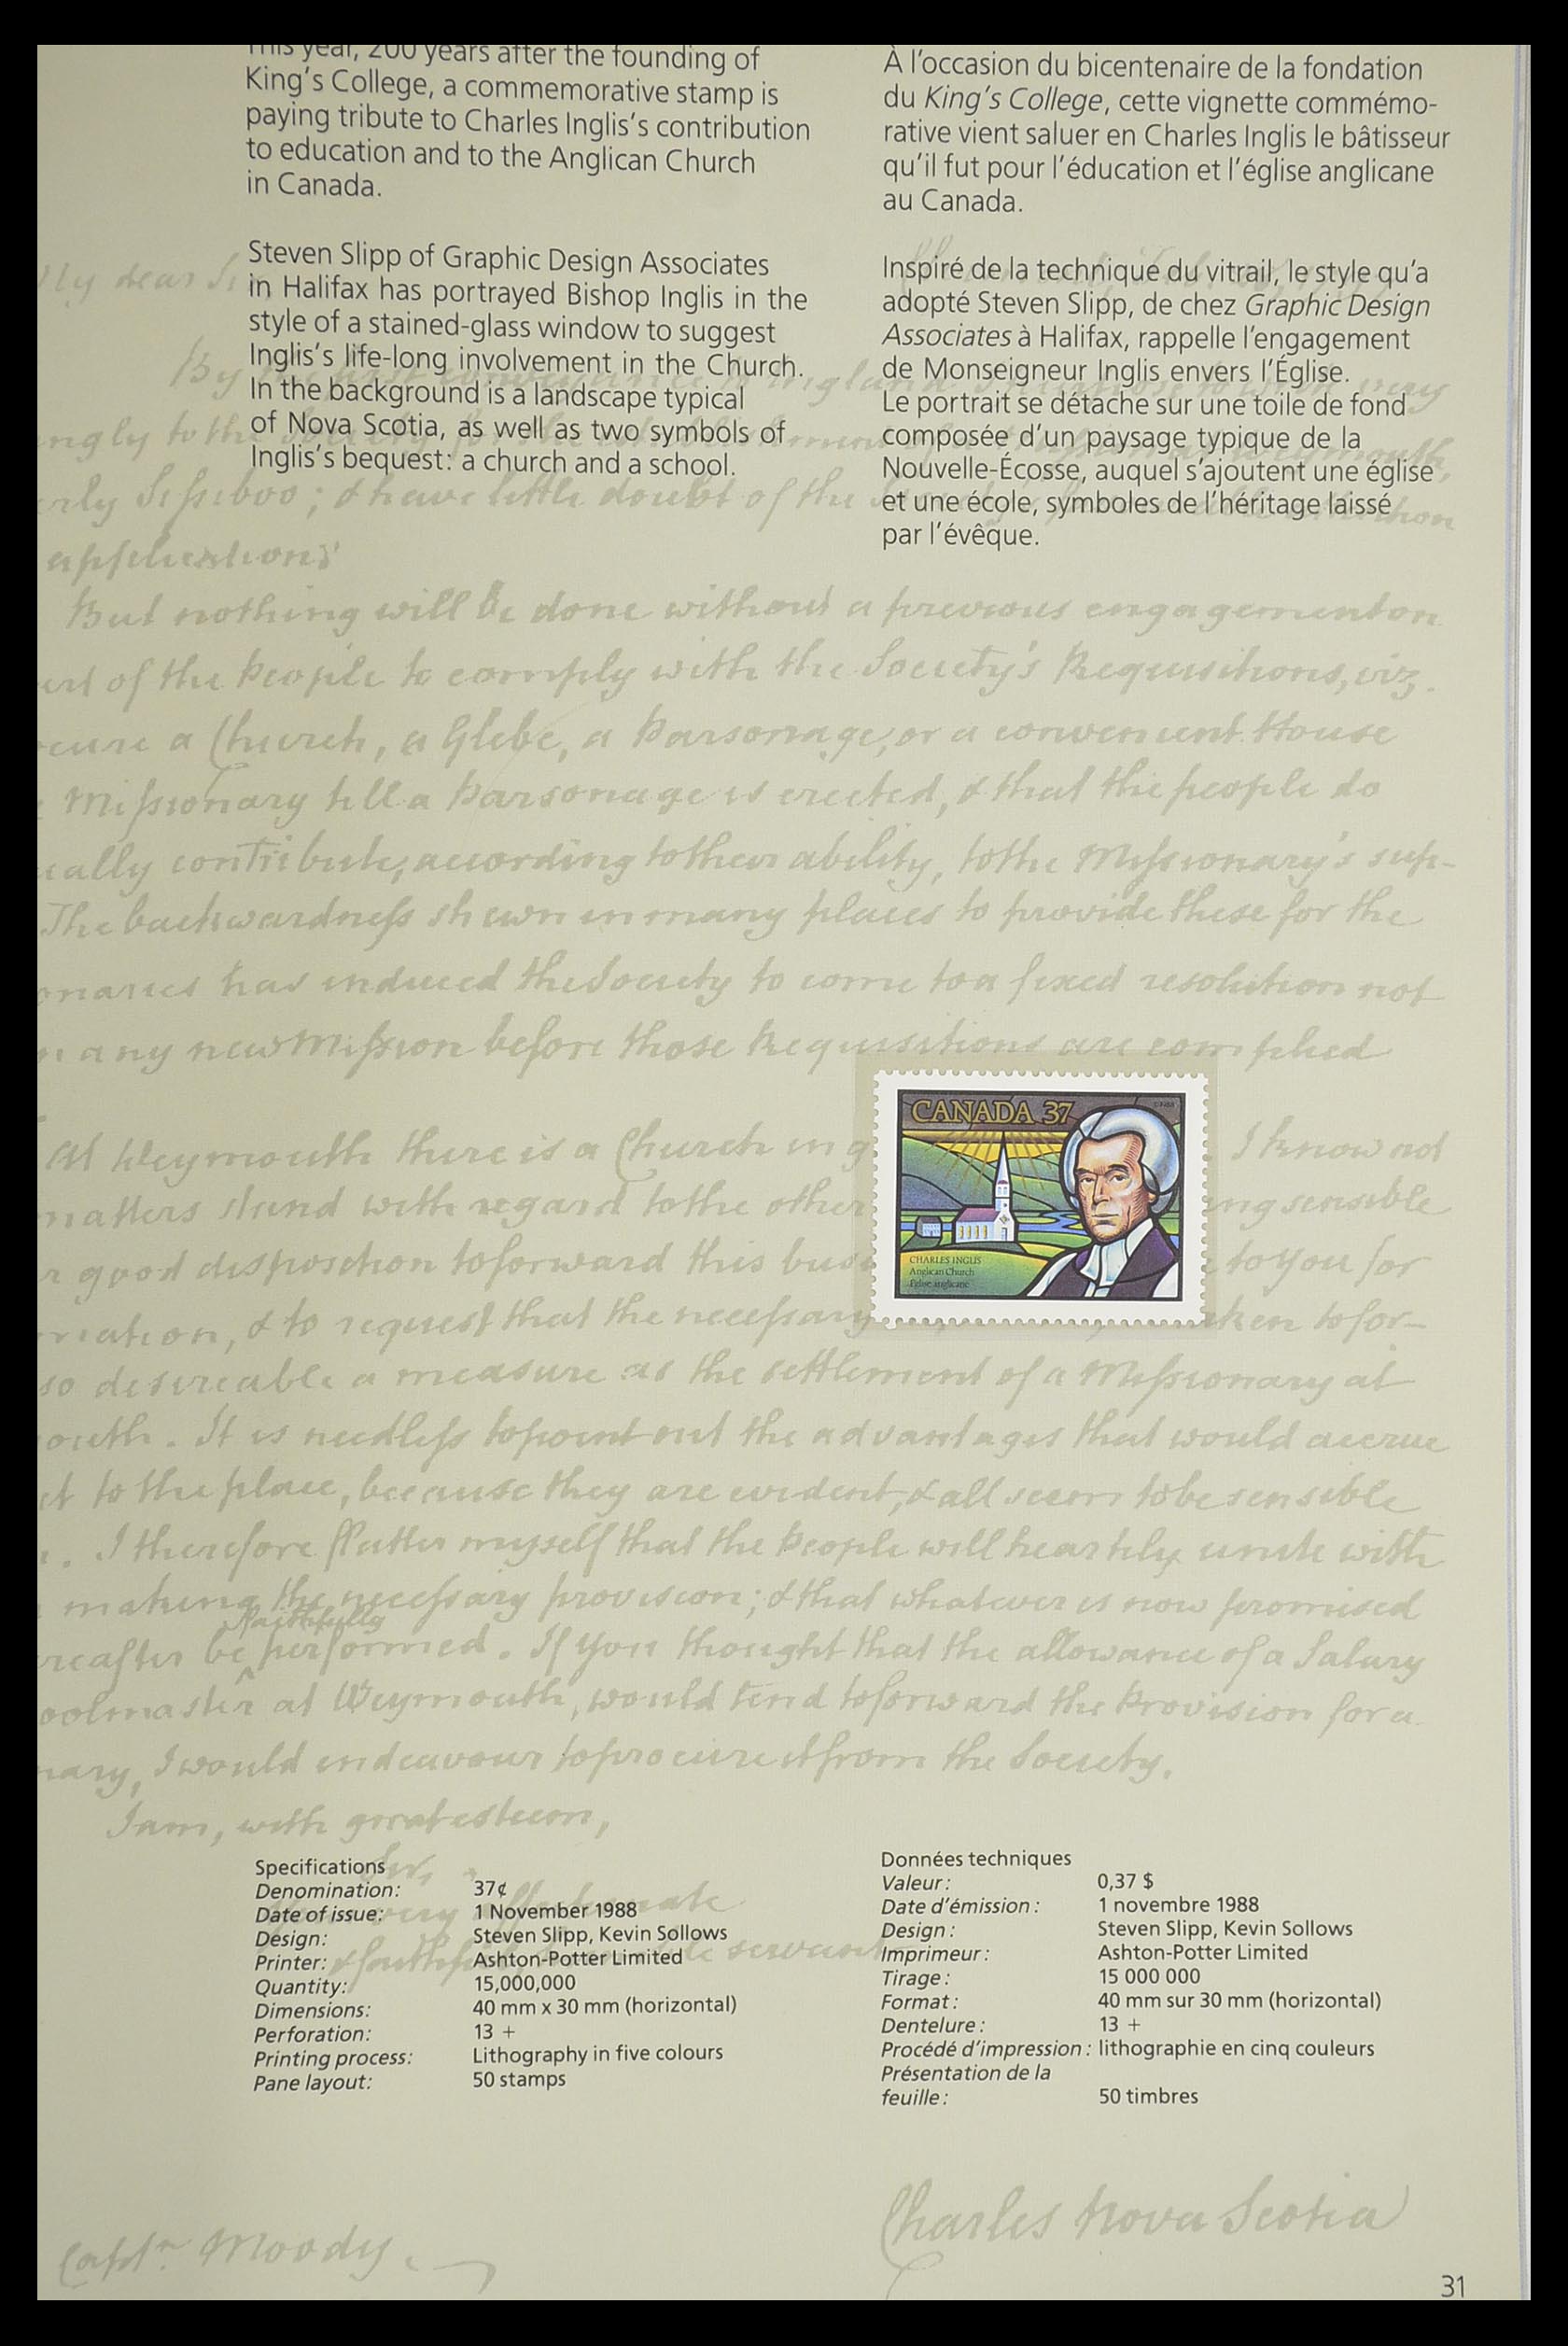 This year, 200 years after the founding of
King's College, a commemorative stamp is
paying tribute to Charles Inglis's contribution
to education and to the Anglican Church
in Canada.
Steven Slipp of Graphic Design Associates
in Halifax has portrayed Bishop Inglis in the
style of a stained-glass window to suggest
Inglis's life-long involvement in the Church.
In the background is a landscape typical
of Nova Scotia, as well as two symbols of
Inglis's bequest: a church and a school.
À l'occasion du bicentenaire de la fondation
du King's College, cette vignette commémo-
rative vient saluer en Charles Inglis le bâtisseur
qu'il fut pour l'éducation et l'église anglicane
au Canada.
Inspiré de la technique du vitrail, le style qu'a
adopté Steven Slipp, de chez Graphic Design
Associates à Halifax, rappelle l'engagement
de Monseigneur Inglis envers l'Église.
Le portrait se détache sur une toile de fond
composée d'un paysage typique de la
Nouvelle-Écosse, auquel s'ajoutent une église
et une école, symboles de l'héritage laissé
par l'évêque.
My dear Sir
By
to the
Sissiboo; & have little doubt of the
application;
But nothing will be done without a previous engagement on
of the People to comply with the Society's Requisitions, viz.
a Church, a Glebe, a Parsonage, or a convenient House
Missionary till a Parsonage is erected, & that the people do
contribute, according to their ability, to the Missionary's sup-
The backwardness shewn in many places to provide these for the
has induced the Society to come to a fixed resolution not
any new Mission before those Requisitions are complied
At Weymouth there is a Church in g I know not
matters stand with regard to the other ing sensible
good disposition to forward this bus to you for
& to request that the necessary ken to for-
so desireable a measure as the settlement of a Missionary at
outh. It is needless to point out the advantages that would accrue
to the place, because they are evident, & all seem to be sensible
I therefore flatter myself that the People will heartily unite with
making the necessary provision; & that whatever is now promised
faithfully
reafter be performed. If you thought that the allowance of a Salary
oolmaster at Weymouth, would tend to forward the Provision for a
nary, I would endeavour to procure it from the Society.
I am, with great esteem,
Sir,
very affectionate
& faithful servant
CANADA 37
CHARLES INGLIS
Anglican Church
Église anglicane
Specifications
Denomination: 37¢
Date of issue: 1 November 1988
Design: Steven Slipp, Kevin Sollows
Printer: Ashton-Potter Limited
Quantity: 15,000,000
Dimensions: 40 mm x 30 mm (horizontal)
Perforation: 13 +
Printing process: Lithography in five colours
Pane layout: 50 stamps
Données techniques
Valeur: 0,37 $
Date d'émission: 1 novembre 1988
Design: Steven Slipp, Kevin Sollows
Imprimeur: Ashton-Potter Limited
Tirage: 15 000 000
Format: 40 mm sur 30 mm (horizontal)
Dentelure: 13 +
Procédé d'impression: lithographie en cinq couleurs
Présentation de la
feuille: 50 timbres
Charles Nova Scotia
Captn Moody.
31